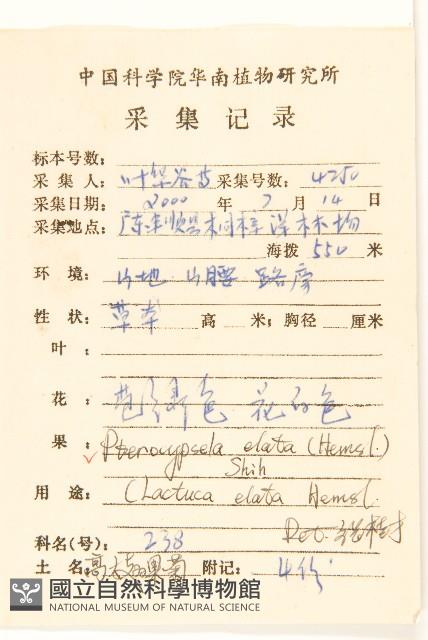 中国科学院华南植物研究所
采集记录
标本号数:
采集人: 叶华谷等 采集号数: 4250
采集日期: 2000 年 7 月 14 日
采集地点: 广东 林场
海拨 550 米
环境: 山地 山腰 路旁
性状: 草本 高 米; 胸径 厘米
叶:
花: 色 花白色
果: Pterocypsela elata (Hemsl.)
Shih
用途: (Lactuca elata Hemsl.
Det.
科名(号): 238
土名: 高大翅果菊 附记: 4份
國立自然科學博物館
NATIONAL MUSEUM OF NATURAL SCIENCE